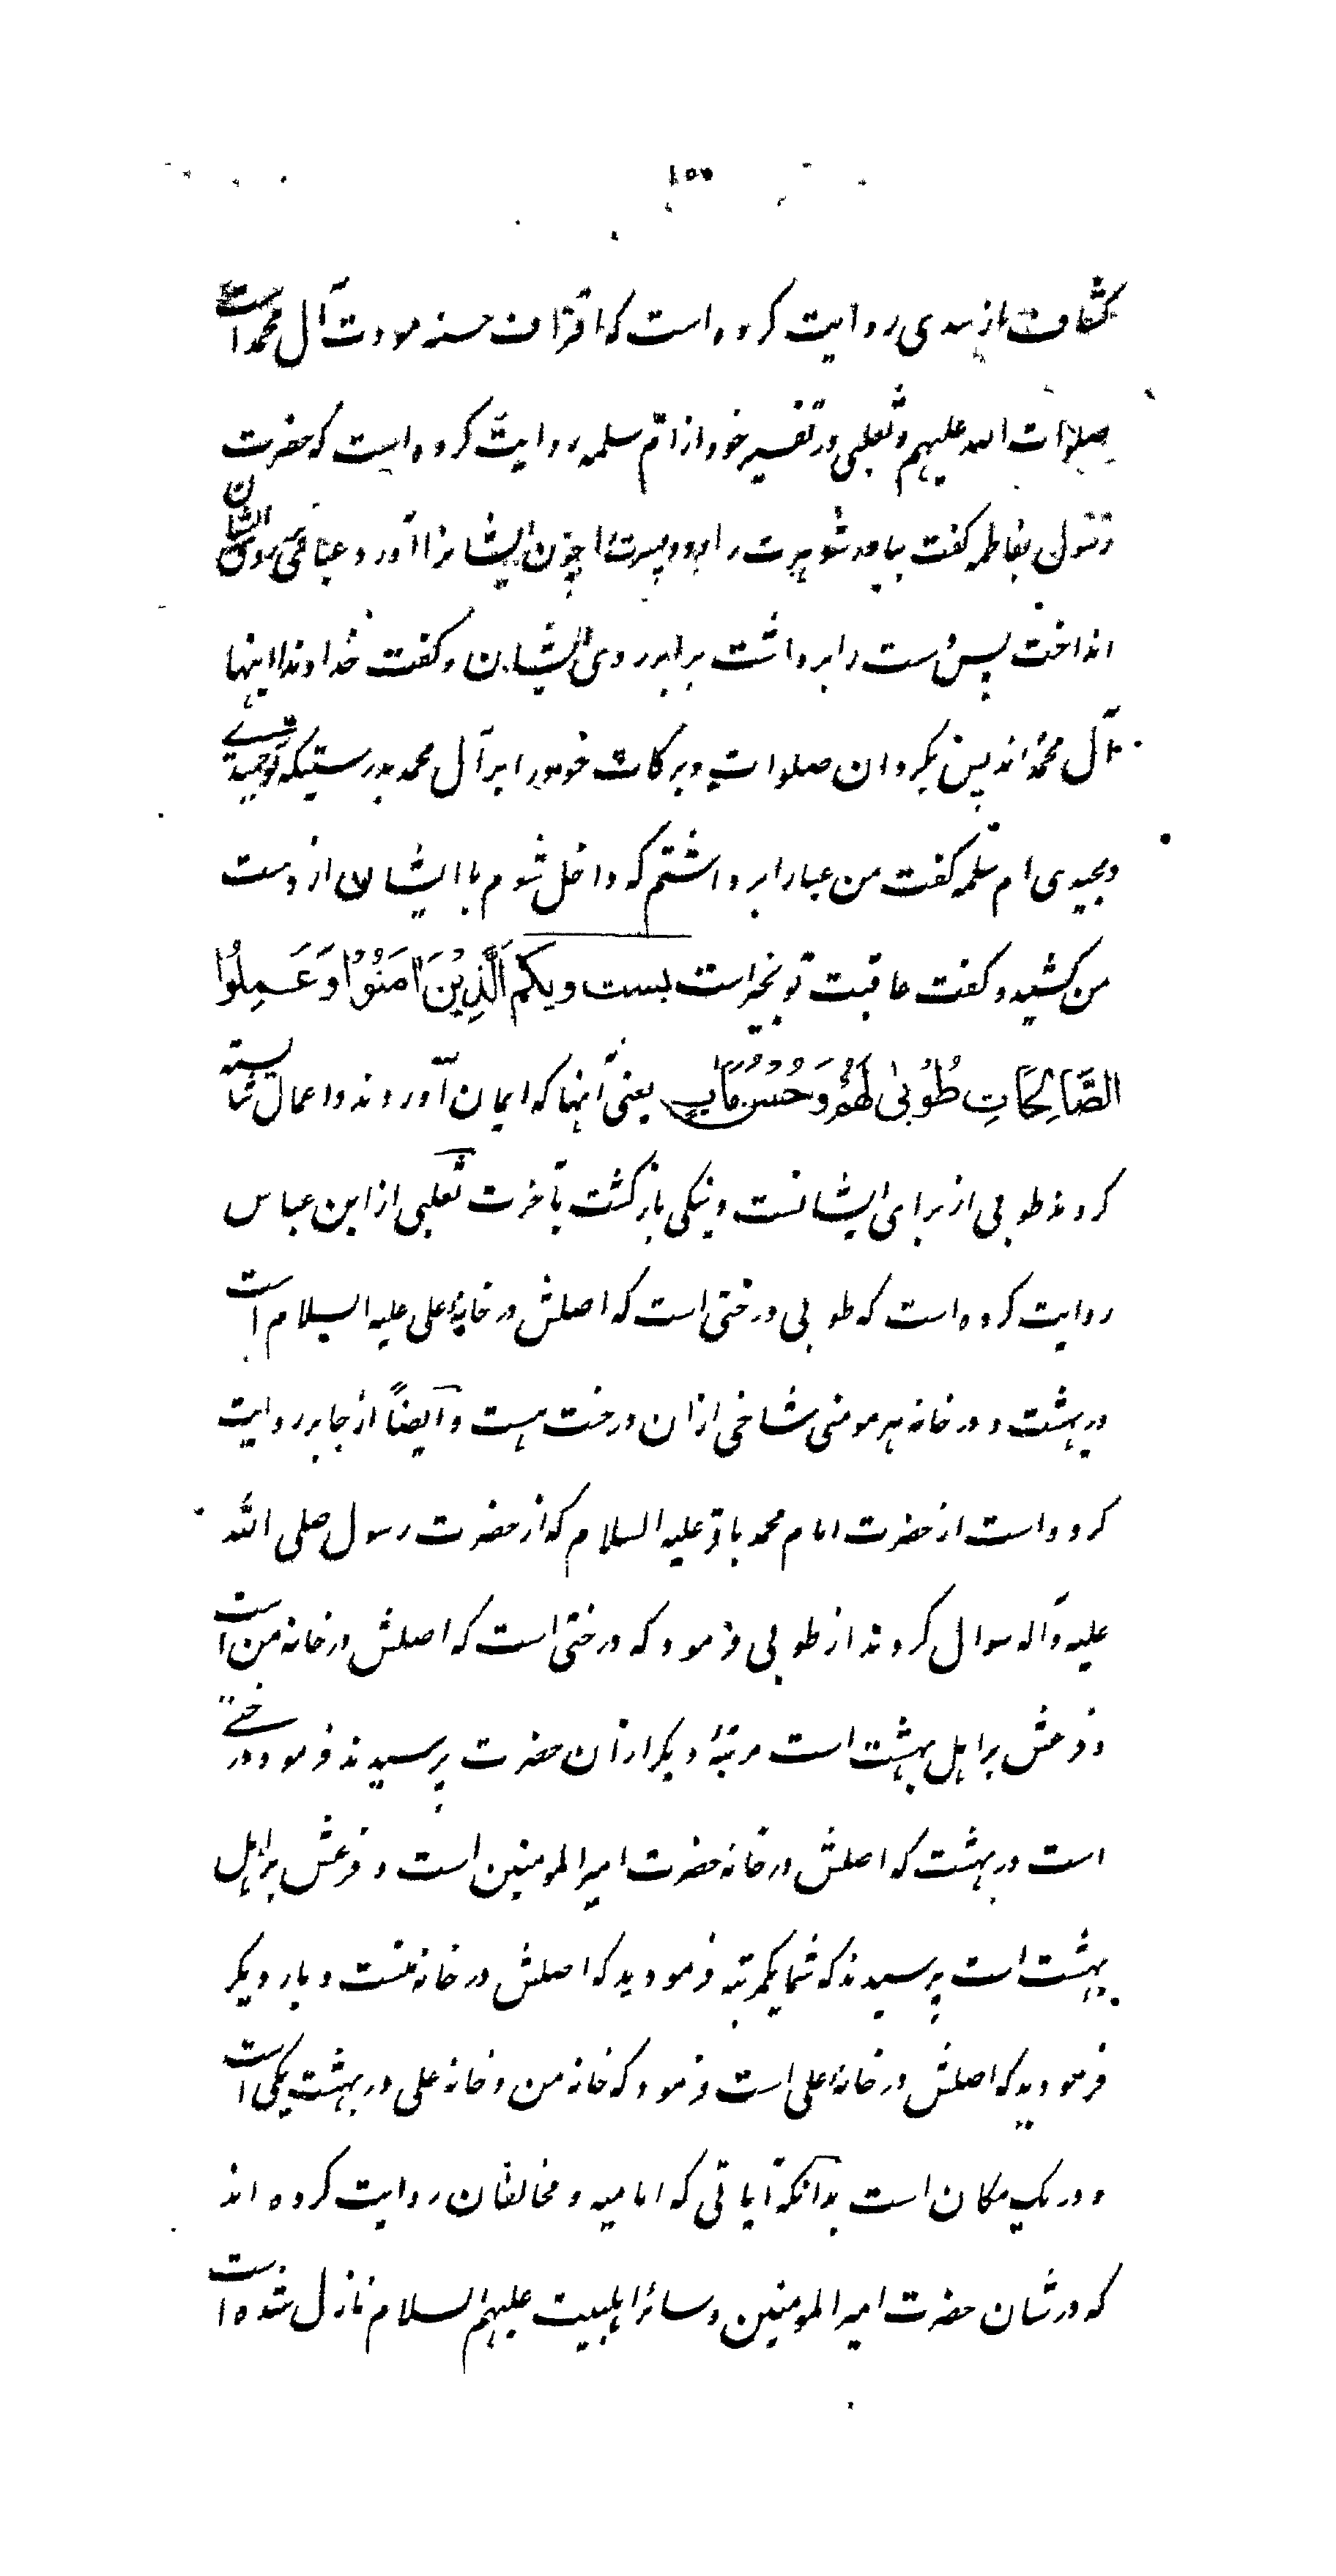 ۱۵۰
کشاف از سدی روایت کرده است که اقتراف حسنه مودت آل محمد است
صلوات الله علیهم و ثعلبی در تفسیر خود از ام سلمه روایت کرده است که حضرت
رسول بفاطمه گفت بیاور شوهرت را و دو پسرت را چون ایشانرا آورد عبا بروی ایشان
انداخت پس دست را برداشت برابر روی ایشان و گفت خداوندا اینها
آل محمد اند پس بگردان صلوات و برکات خود را بر آل محمد بدرستیکه تو حمیدی
و مجیدی ام سلمه گفت من عبا را برداشتم که داخل شوم با ایشان از دست
من کشید و گفت عاقبت تو بخیر است بیست و یکم الَّذِیْنَ اٰمَنُوْا وَ عَمِلُوا
الصَّالِحَاتِ طُوْبٰی لَهُمْ وَ حُسْنُ مَاٰبٍ یعنی آنها که ایمان آوردند و اعمال شایسته
کردند طوبی از برای ایشانست و نیکی بازگشت بآخرت ثعلبی از ابن عباس
روایت کرده است که طوبی درختی است که اصلش در خانهٔ علی علیه السلام است
در بهشت و در خانه هر مومنی شاخی از ان درخت هست و ایضاً از جابر روایت
کرده است از حضرت امام محمد باقر علیه السلام که از حضرت رسول صلی الله
علیه و آله سوال کردند از طوبی فرمود که درختی است که اصلش در خانه من است
و فرعش بر اهل بهشت است مرتبهٔ دیگر از آن حضرت پرسیدند فرمود درختی
است در بهشت که اصلش در خانه حضرت امیر المومنین است و فرعش بر اهل
بهشت است پرسیدند که شما یکمرتبه فرمودید که اصلش در خانه منست و بار دیگر
فرمودید که اصلش در خانهٔ علی است فرمود که خانه من و خانه علی در بهشت یکی است
و در یک مکان است بدانکه آیاتی که امامیه و مخالفان روایت کرده اند
که در شان حضرت امیر المومنین و سائر اهلبیت علیهم السلام نازل شده است